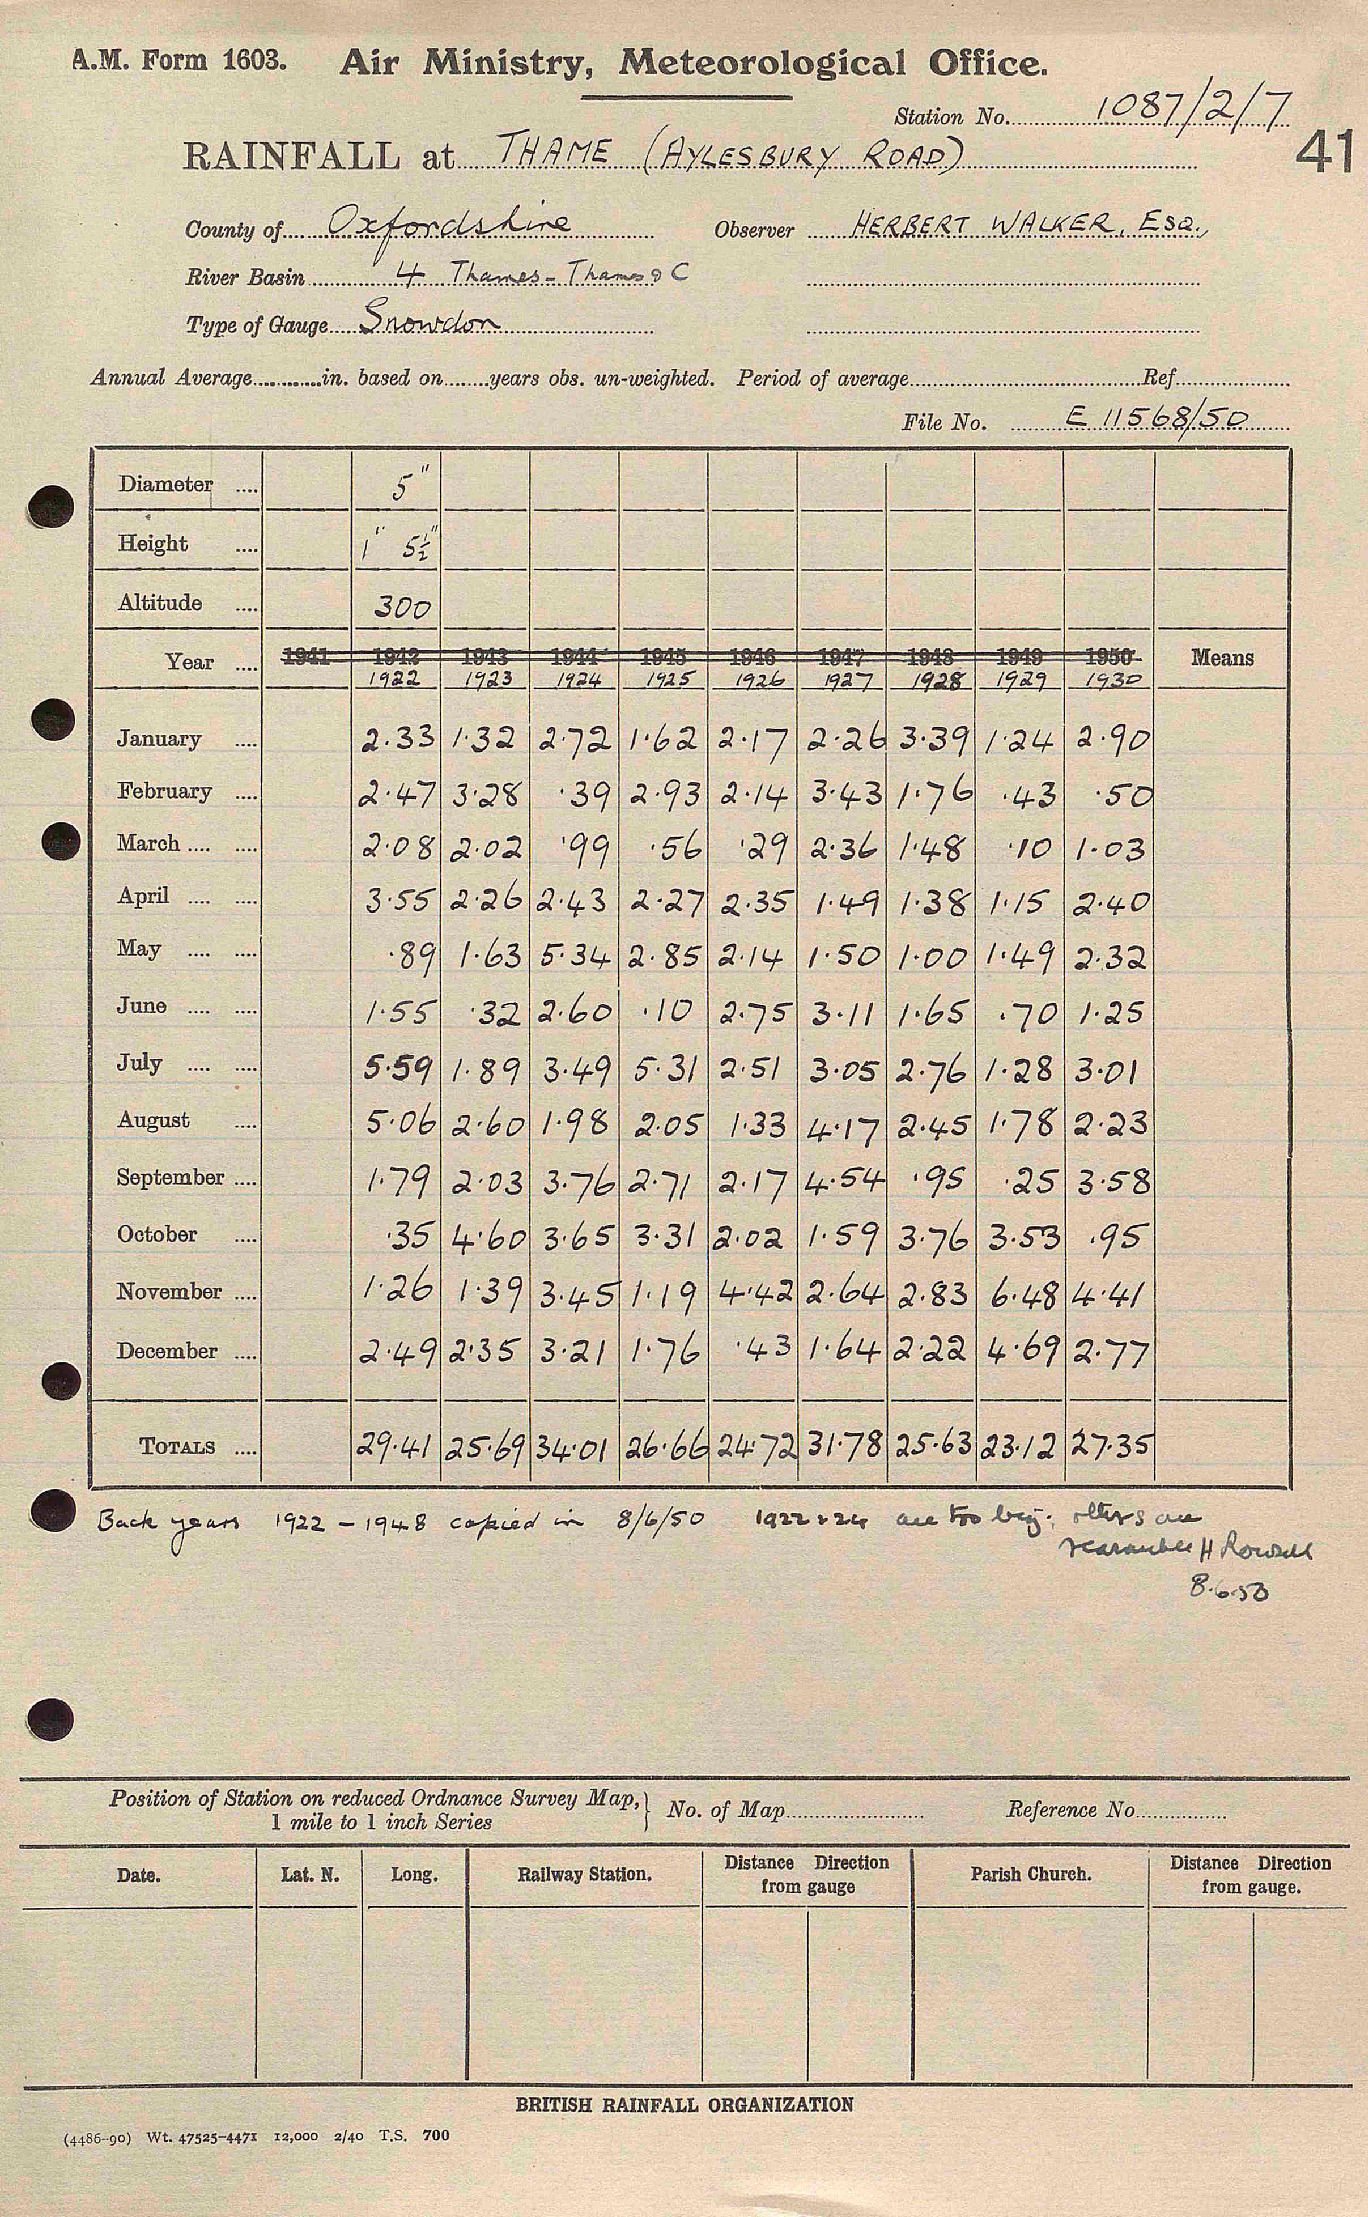 A.M. Form 1603. Air Ministry, Meteorological Office.
Station No. 1087/2/7
41
RAINFALL at THAME (AYLESBURY ROAD)
County of Oxfordshire Observer HERBERT WALKER, ESQ.,
River Basin 4 Thames - Thames & C
Type of Gauge Snowdon
Annual Average in. based on years obs. un-weighted. Period of average Ref.
File No. E 11568/50
Diameter 5"
Height 1" 5½"
Altitude 300
Year 1941 1942 1943 1944 1945 1946 1947 1948 1949 1950 Means
1922 1923 1924 1925 1926 1927 1928 1929 1930
January 2.33 1.32 2.72 1.62 2.17 2.26 3.39 1.24 2.90
February 2.47 3.28 .39 2.93 2.14 3.43 1.76 .43 .50
March 2.08 2.02 .99 .56 .29 2.36 1.48 .10 1.03
April 3.55 2.26 2.43 2.27 2.35 1.49 1.38 1.15 2.40
May .89 1.63 5.34 2.85 2.14 1.50 1.00 1.49 2.32
June 1.55 .32 2.60 .10 2.75 3.11 1.65 .70 1.25
July 5.59 1.89 3.49 5.31 2.51 3.05 2.76 1.28 3.01
August 5.06 2.60 1.98 2.05 1.33 4.17 2.45 1.78 2.23
September 1.79 2.03 3.76 2.71 2.17 4.54 .95 .25 3.58
October .35 4.60 3.65 3.31 2.02 1.59 3.76 3.53 .95
November 1.26 1.39 3.45 1.19 4.42 2.64 2.83 6.48 4.41
December 2.49 2.35 3.21 1.76 .43 1.64 2.22 4.69 2.77
TOTALS 29.41 25.69 34.01 26.66 24.72 31.78 25.63 23.12 27.35
Back years 1922 - 1948 copied in 8/6/50 1922 & 24 are too big; others are
H
8.6.53
Position of Station on reduced Ordnance Survey Map,
1 mile to 1 inch Series
No. of Map Reference No.
Date. Lat. N. Long. Railway Station. Distance Direction from gauge Parish Church. Distance Direction from gauge.
BRITISH RAINFALL ORGANIZATION
(4486-90) Wt. 47525-4471 12,000 2/40 T.S. 700